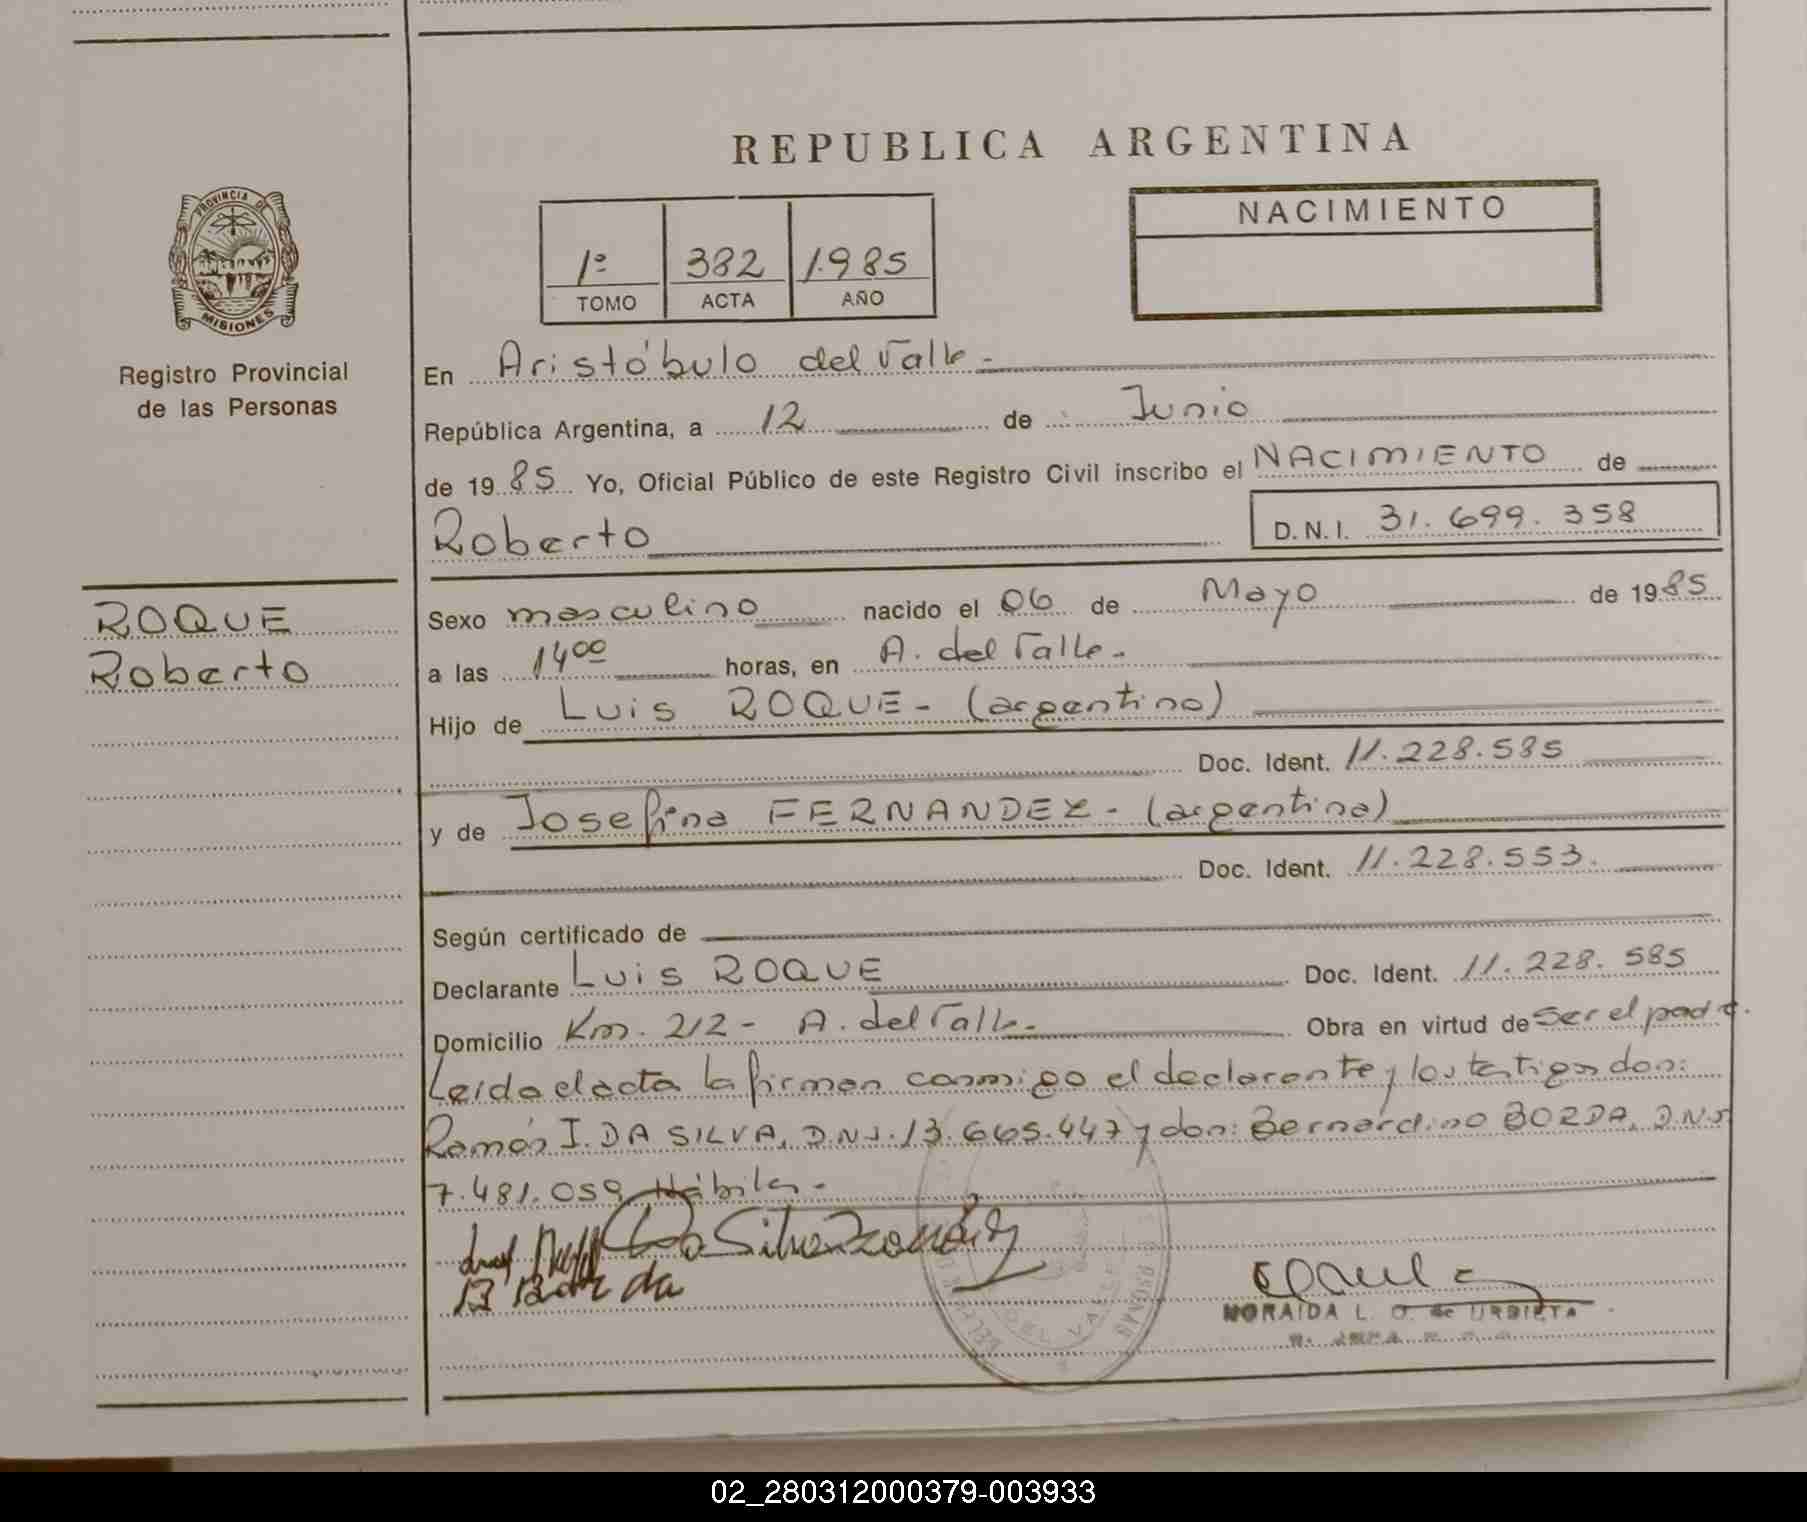 REPUBLICA ARGENTINA
PROVINCIA DE
MISIONES
Registro Provincial
de las Personas
1º 382 1985
TOMO ACTA AÑO
NACIMIENTO
En Aristóbulo del Valle -
República Argentina, a 12 de Junio
de 1985 Yo, Oficial Público de este Registro Civil inscribo el NACIMIENTO de
Roberto
D.N.I. 31.699.358
ROQUE
Roberto
Sexo masculino nacido el 06 de Mayo de 1985
a las 14 00 horas, en A. del Valle -
Hijo de Luis ROQUE - (argentino)
Doc. Ident. 11.228.585
y de Josefina FERNANDEZ - (argentina)
Doc. Ident. 11.228.553.
Según certificado de
Declarante Luis ROQUE Doc. Ident. 11.228.585
Domicilio Km. 212 - A. del Valle - Obra en virtud de ser el padre.
Leída el acta la firman conmigo el declarante y los testigos don:
Ramón I. DA SILVA, D.N.I. 13.665.447 y don: Bernardino BORDA, D.N.I
7.481.059 Hábiles -
Da Silva Ramón
B Borda
NORAIDA L. O. de URBIETA
02_280312000379-003933